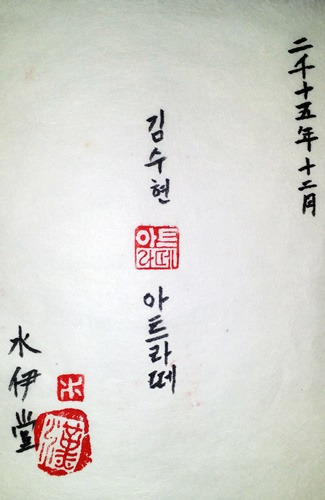 二千十五年十二月
김수현
아트
라떼
아트라떼
水伊堂